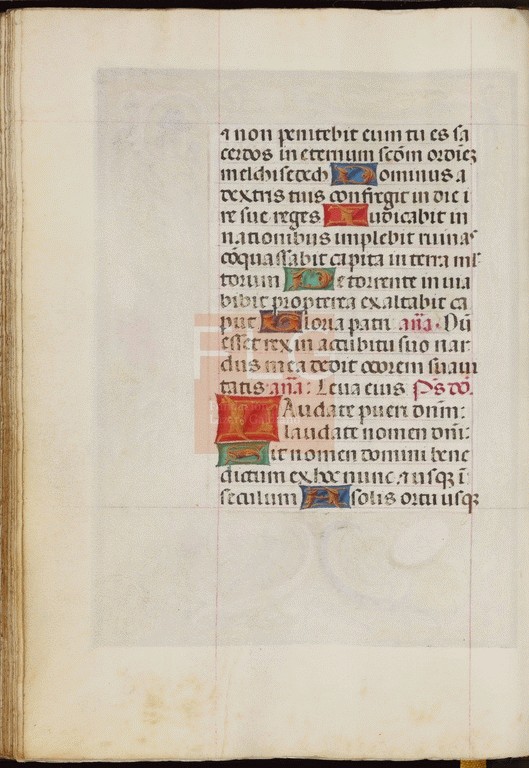 ⁊ non penitebit eum tu es sa
cerdos in eternum scd̄m ordinēz
melchisedech Dominus a
dextris tuis confregit in die i
re sue reges Iudicabit in
nationibus implebit ruinas
cōquassabit capita in terra ml̄
torum De torrente in uia
bibit propterea exaltabit ca
put Gloria patri an̄a. Dū
esset rex in accubitu suo nar
dus mea dedit odorem suaui
tatis an̄a: Leua eius Ps̄ dd̄.
LAudate pueri dnm̄:
laudate nomen dnī:
Sit nomen domini bene
dictum ex hoc nunc ⁊ usq̨ ī
seculum A solis ortu usq̨